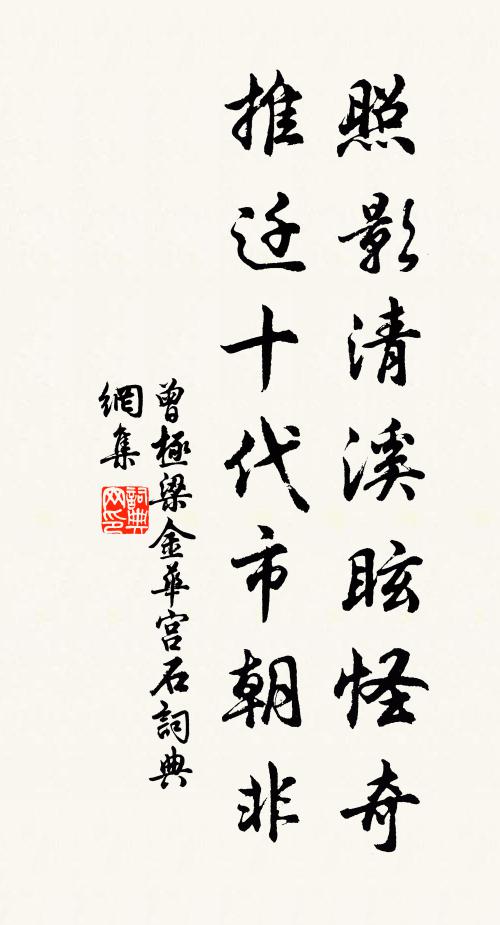 照影清溪眩怪奇
推迁十代市朝非
曾極梁金華宮石詞典
網集
詞典
网印